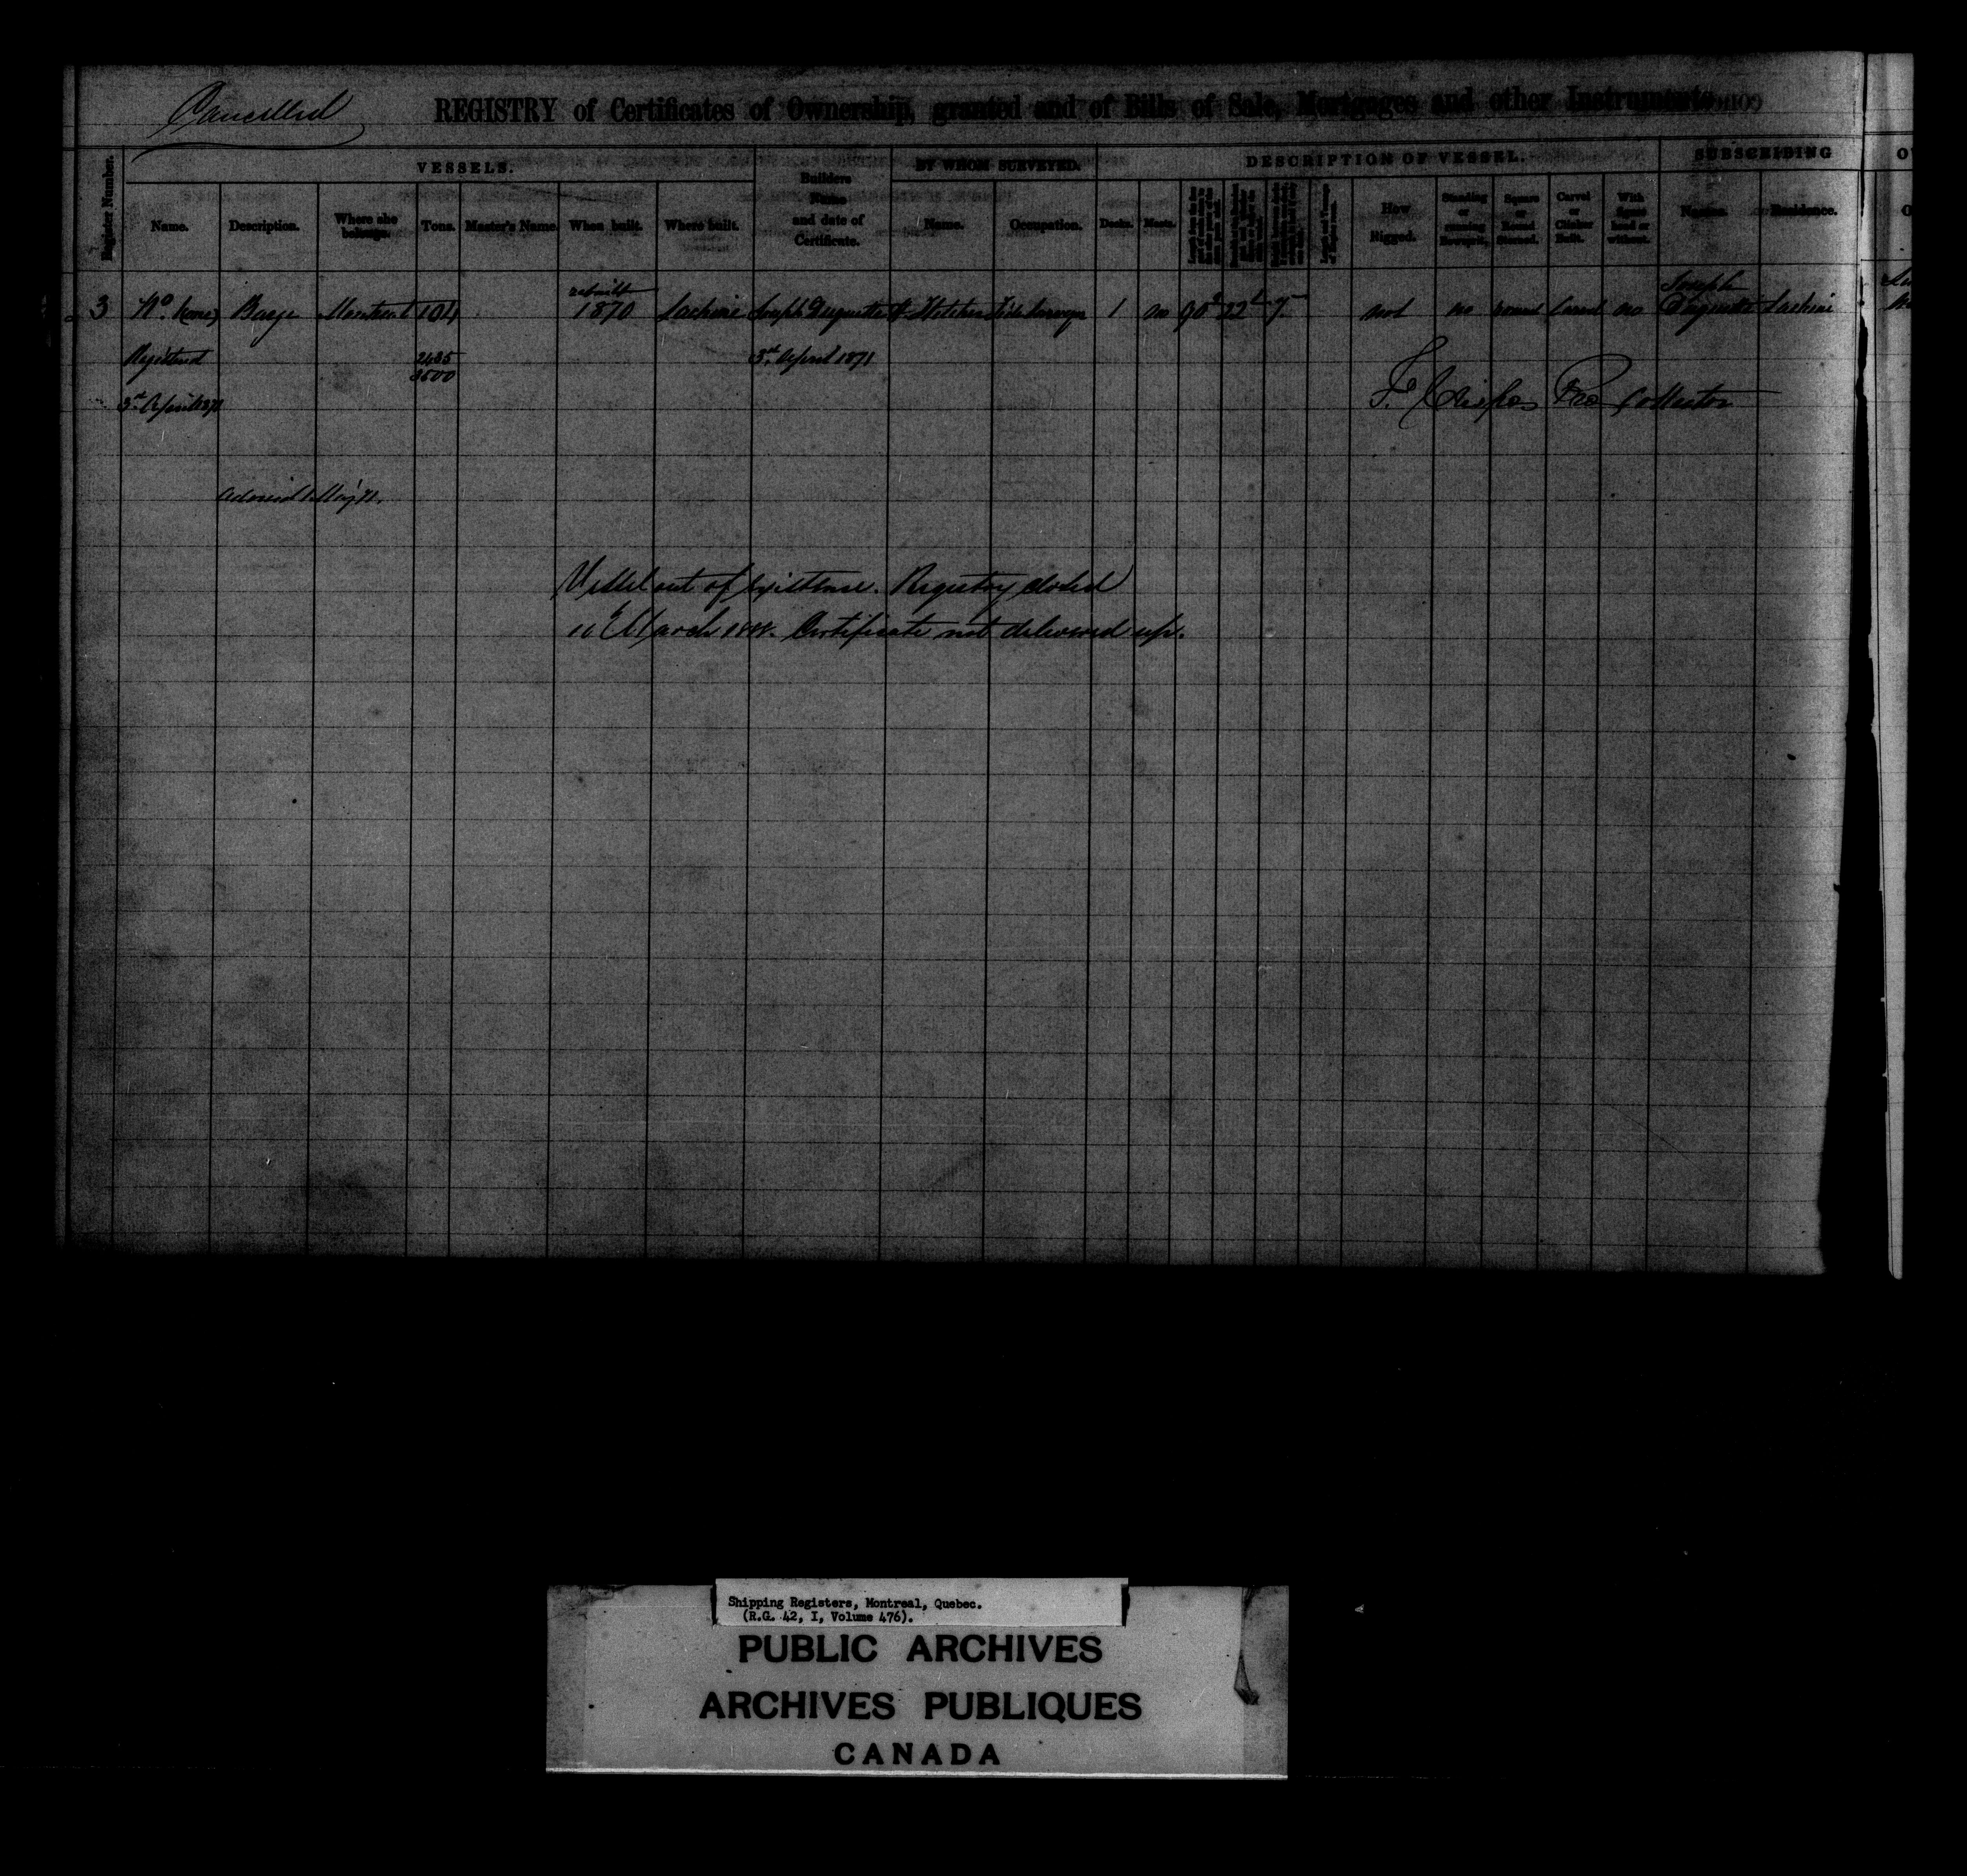 Cancelled
REGISTRY of Certificates of Ownership, granted and of Bills of Sale, Mortgages and other Instruments
Register Number.
VESSELS.
Name.
Description.
Where she belongs.
Tons.
Master's Name.
When built.
Where built.
Builders Name and date of Certificate.
BY WHOM SURVEYED.
Name.
Occupation.
DESCRIPTION OF VESSEL.
Decks.
Masts.
How Rigged.
Standing or running Bowsprit.
Square or Round Sterned.
Carvel or Clinker Built.
With figure head or without.
SUBSCRIBING
Names.
Residence.
rebuilt
3 No. (one) Barge Montreal 104 1870 Lachine Joseph Duquette Fletcher 1 no 90 22 7 not no round Carvel no Joseph Duquette Lachine
Registered 2485 3rd April 1871
3500
3rd April 1871
F. Crispo Pro Collector
Advised 1 May 71.
Vessel out of existence. Registry closed
March Certificate not delivered up.
Shipping Registers, Montreal, Quebec.
(R.G. 42, I, Volume 476).
PUBLIC ARCHIVES
ARCHIVES PUBLIQUES
CANADA